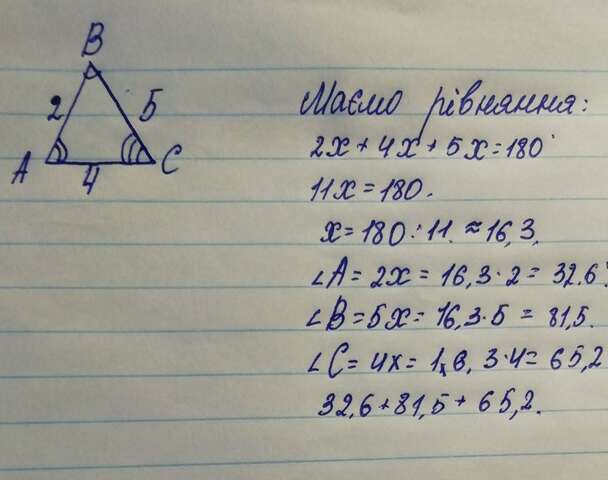 B
2
5
A
4
C
Маємо рівняння:
2x + 4x + 5x = 180°
11x = 180.
x = 180 : 11 ≈ 16,3.
∠A = 2x = 16,3 · 2 = 32,6°.
∠B = 5x = 16,3 · 5 = 81,5.
∠C = 4x = 16, 3 · 4 = 65,2
32,6 + 81,5 + 65,2.